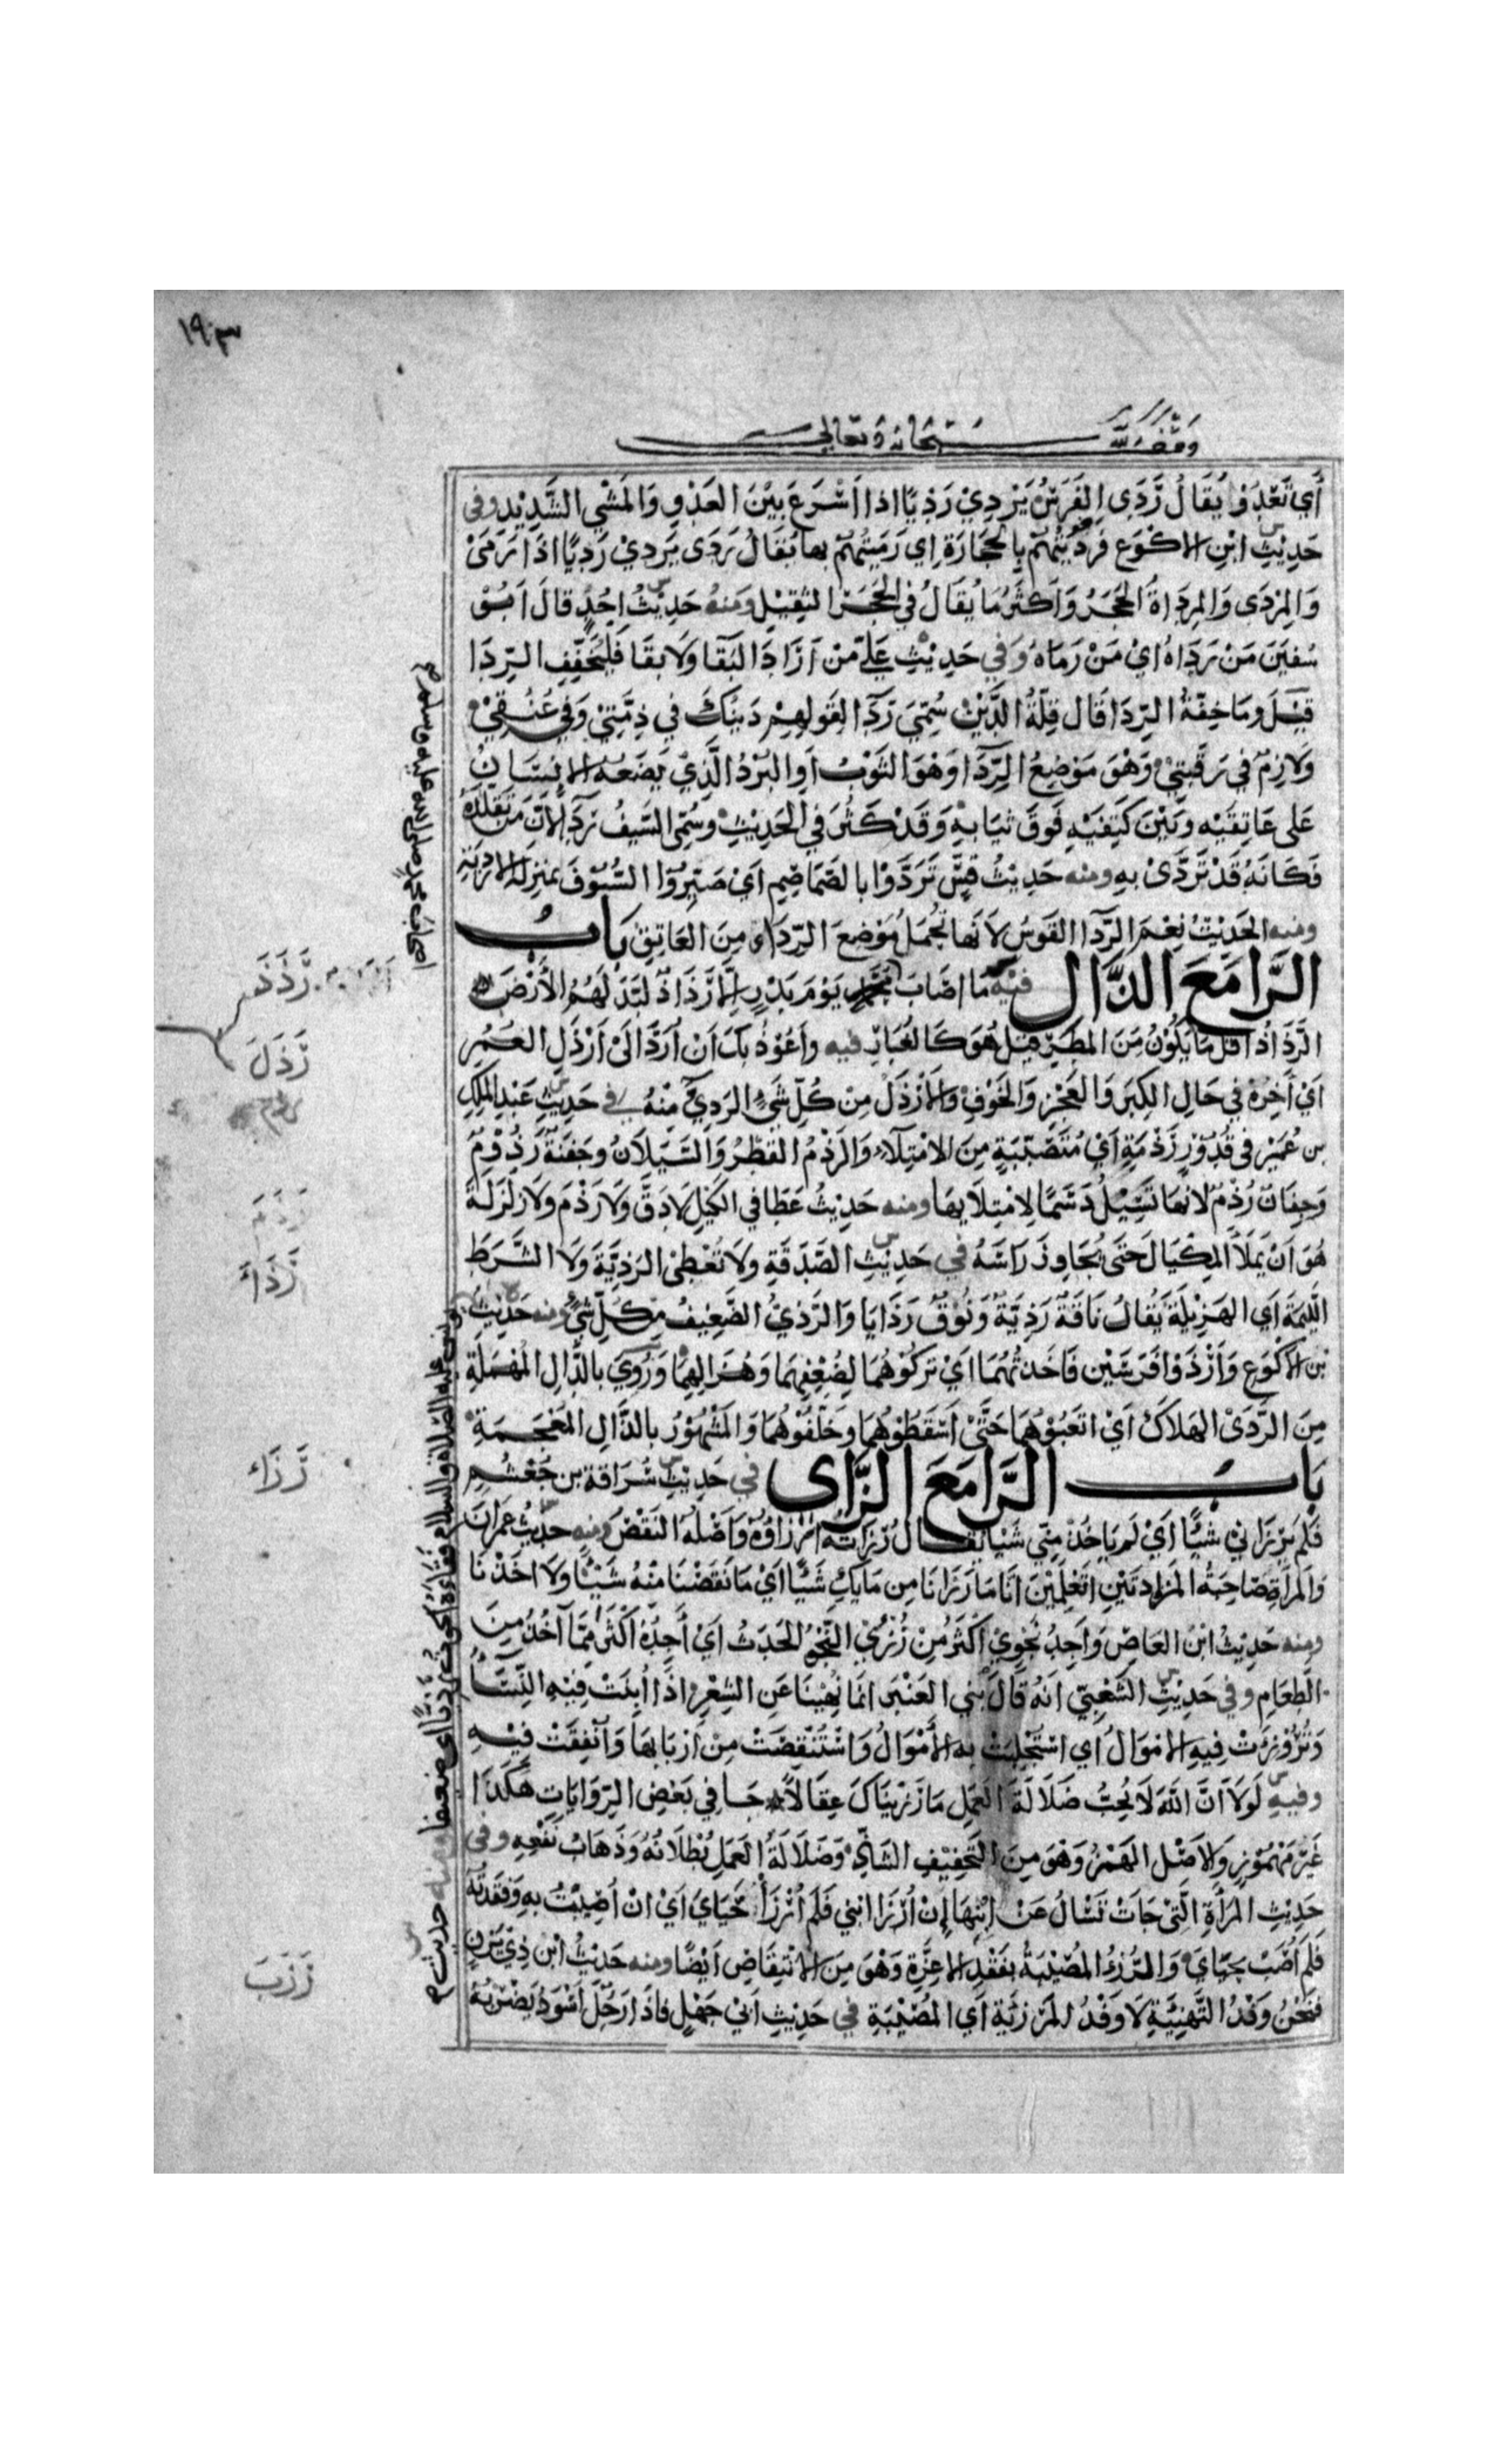 ١٩٣
وقف لله سبحانه وتعالى
أَي تَعْدُوْا يُقَالُ رَدَى الفَرَسُ يَرْدِيْ رَدْيًا اذا اَسْرَعَ بَيْنَ العَدْوِ وَالمَشْيِ الشَّدِيْدِ وفى
حَدِيْثِ ابْنِ الاكْوَعِ فَرَدَيْتُهُمْ بِالحِجَارَةِ اِي رَمَيْتُهُمْ بها يُقَالُ رَدَى يَرْدِيْ رَدْيًا اذَا رَمَىْ
وَالمِرْدَى وَالمِرْدَاةُ الحَجَرُ وَاَكْثَرُ مَا يُقَالُ في الحَجَرِ الثقِيْلِ ومنهُ حَدِيْثُ اُحُدٍ قالَ اَبُوْ
سُفيَن مَنْ رَدَاهُ ايْ مَنْ رَمَاهُ وَفي حَدِيْثِ عَليٍّ مَنْ اَرَادَ البَقَا وَلَا بقَا فَليُخَفِّفِ الرِّدَا
قِيْلَ ومَا خِفّةُ الرِّدَا قَال قِلَّةُ الدَّيْنِ سُمِّيَ رِدَآ لِقَولِهِمْ دَيْنُكَ في ذِمَّتِيْ وَفي عُنُقِيْ
وَلَازِمٌ في رَقَبَتِيْ وَهْوَ مَوْضِعُ الرِّدَآ وَهْوَ الثَوْبُ اَو البُرْدُ الَّذِيْ يَضَعُهُ الانْسَانُ
عَلى عَاتِقَيْهِ وبَيْنَ كَتِفَيْهِ فَوقَ ثيَابهِ وَقَدْ كَثُرَ في الحَدِيْثِ وسُمِّى السَيفُ رِدَآ لِاَنَّ مَنْ تَقَلدَهُ
فَكَانَهُ قَدْ تَرَدَّىْ بهِ ومنه حَدِيْثُ قِسٍّ تَرَدَّوْا بالصَّمَاصِمِ اَيْ صَيَّرُوْا السُّيُوْفَ بمنزِلَةِ الارْدِيَةِ
ومنه الحَدِيْثُ نِعْمَ الرِّدَآ القَوسُ لاَنَها تُحمَلُ مَوْضِعَ الرِّدَاءِ مِنَ العَاتِقِ بَابُ
الرَّا مَعَ الذَّال فيْهِ مَا اَصَابَ يَوْمَ بَدْرٍ اِلَّا رَذَاذٌ لَبّدَ لَهُمُ الأَرْضَ
الرَّذَاذُ اَقَلُّ مَا يَكُوْنُ مِنَ المَطَرِ قِيْلَ هُوَ كَالغُبَارِ فيه وأَعُوْذُ بِكَ اَنْ اُرَدَّ الَى اَرْذَلِ العُمُرِ
اَيْ اٰخِرِهِ في حَالِ الكِبَرِ وَالعَجْزِ وَالخَوْفِ وَالاَرْذَلُ مِنْ كُلِّ شَيءٍ الرَدِيُّ مِنْهُ في حَدِيْثِ عَبْدِ المَلِكِ
بن عُمَيْرٍ في قُدُوْرٍ رَذِمَةٍ اَيْ مُتَصَبِّبَةٍ مِنَ الامْتِلَاءِ وَالرَذْمُ القَطْرُ وَالسَّيَلَانُ وجَفْنَةٌ رَذُوْمٌ
وَجِفَانٌ رُذُمٌ لاَنَّهَا تَسِيْلُ دَسَمًا لِامْتِلَائِهَا ومنه حَدِيْثُ عَطَا في الكَيْلِ لَا دَقَّ وَلَا رَذْمَ ولَا زَلْزَلةَ
هُوَ اَنْ يَملَأَ المِكْيَالَ حَتَى يُجَاوِزَ رَاسَهُ في حَدِيْثِ الصَّدَقَةِ ولَا تُعْطِى الرَذِيَّةَ وَلَا الشَّرَطَ
اللَّئِيْمَةَ اَي الهَزِيْلَةَ يُقَالُ نَاقَةٌ رَذِيَّةٌ وَنُوْقٌ رَذَايَا وَالرَّذِيُّ الضَّعِيْفُ مِنْ كُلِّ شَيْءٍ ومنه حَدِيْثُ
بْنِ الاكْوَعِ وَاَرْذَوْا فَرَسَيْنِ فَاَخَذْتُهُمَا ايْ تَركُوْهُمَا لِضُعْفِهِمَا وَهُزَالِهِمَا وَرُوِيَ بالدَّالِ المُهْمَلَةِ
مِنَ الرَّدَىْ الهَلَاكِ اَيْ اتعَبُوْهُمَا حَتَّىْ اَسْقَطُوْهُمَا وخَلَّفُوْهُمَا وَالمَشْهُوْرُ بالذَّالِ المُعْجَمَةِ
بَابُ الرَّا مَعَ الزَّاى في حَدِيْثِ سُرَاقةَ بن جُعْشُمٍ
فَلَمْ يَرْزَاَنِي شَيْأً اَيْ لَم يَاخُذْ مِنّي شَيْا يُقَالُ رَزَاتُهُ اَرْزَاؤُهُ وَاَصْلُهُ النَقْصُ ومنه حَدِيْثُ عِمرَانَ
وَالمرأةِ صَاحِبَةِ المَزادَتَيْنِ اتَعْلَمِيْنَ انَا مَا رَزَانَا مِن مَايَكِ شَيْأً اَيْ مَا نَقَصْنَا مِنْهُ شَيْئًا وَلَا اخَذْنَا
ومنه حَدِيْثُ ابْنِ العَاصِ وَاَجِدُ نَجْوِيْ اَكْثَرَ مِنْ رُزْئِي النَّجْوُ الحَدَثُ اَيْ أَجِدُهُ اَكْثَرَ مِمَّا آخُذُ مِنَ
الطَعَامِ وفي حَدِيْثِ الشَعْبِيِّ انَهُ قَالَ لِبَني العَنْبَرِ انمَا نُهِيْنَا عَنِ الشِعْرِ اذَا اُبِنَتْ فِيْهِ النِّسَآءُ
وَتُرُوْزِئَتْ فِيْهِ الامْوَالُ اي اسْتُجْلِبَتْ بهِ الأَمْوَالُ وَاسْتُنْقِصَتْ مِنْ اَرْبَابهَا وَاُنْفِقَتْ فيْهِ
وفيهِ لَوْلَا اَنَّ اللهَ لَا يُحِبُّ ضَلَالَةَ العَمَلِ مَا رَزَيْنَاكَ عِقَالاً جَا في بَعْضِ الرِّوَايَاتِ هٰكَذَا
غَيْرَ مَهْمُوْزٍ وَالاَصْلُ الهَمْزُ وَهْوَ مِنَ التَخْفِيْفِ الشَاذِّ وَضَلَالَةُ العَمَلِ بُطْلَانُهُ وَذَهَابُ نَفْعِهِ وفى
حَدِيْثِ المَرْأَةِ الَّتِيْ جَاَتْ تَسْالُ عَنْ اِبْنِهَا اِنْ اُرْزَا ابْنِي فَلَمْ اُرْزَأْ حَيَايَ اَيْ انْ اُصِبْتُ بهِ وَفقَدتُهُ
فَلَم اُصَبْ بحَيَايَ وَالرُزْءُ المُصِيْبَةُ بفَقْدِ الاعِزَّةِ وَهْوَ مِنَ الانْتِقَاصِ اَيْضًا ومنه حَدِيْثُ ابْنِ ذِيْ يَزَنٍ
فنَحْنُ وَفْدُ التَّهْنِئَةِ لَا وَفْدُ المَرْزِئَةِ اَيِ المُصِيْبَةِ في حَدِيْثِ اَبيْ جَهْلٍ فاذَا رَجُلٌ اَسْوَدُ يَضْرِبُهُ
رَذَذَ
رَذَلَ
رَذَمَ
رَذَاءَ
رَزَاء
رَزَبَ